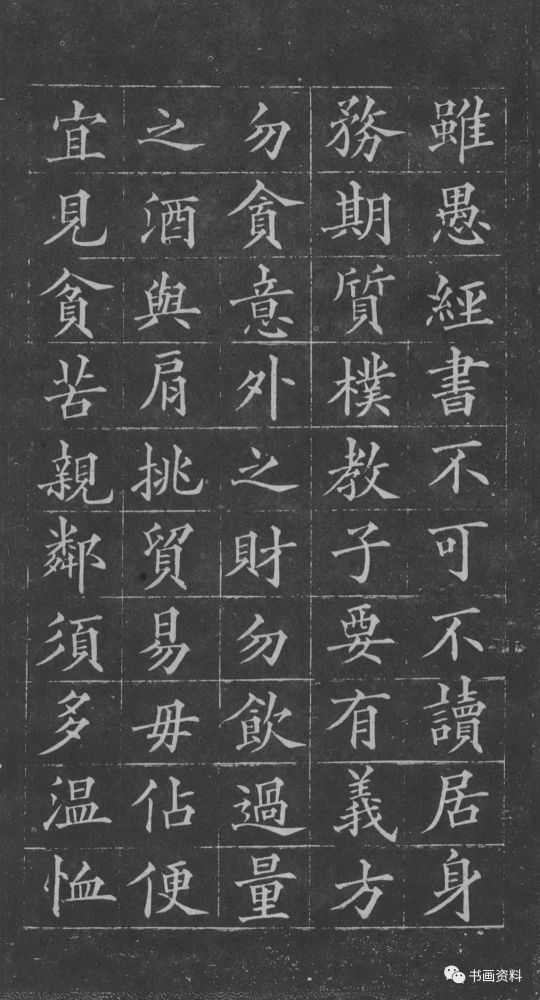 雖愚經書不可不讀居身
務期質樸教子要有義方
勿貪意外之財勿飲過量
之酒與肩挑貿易毋佔便
宜見貧苦親鄰須多温恤
书画资料